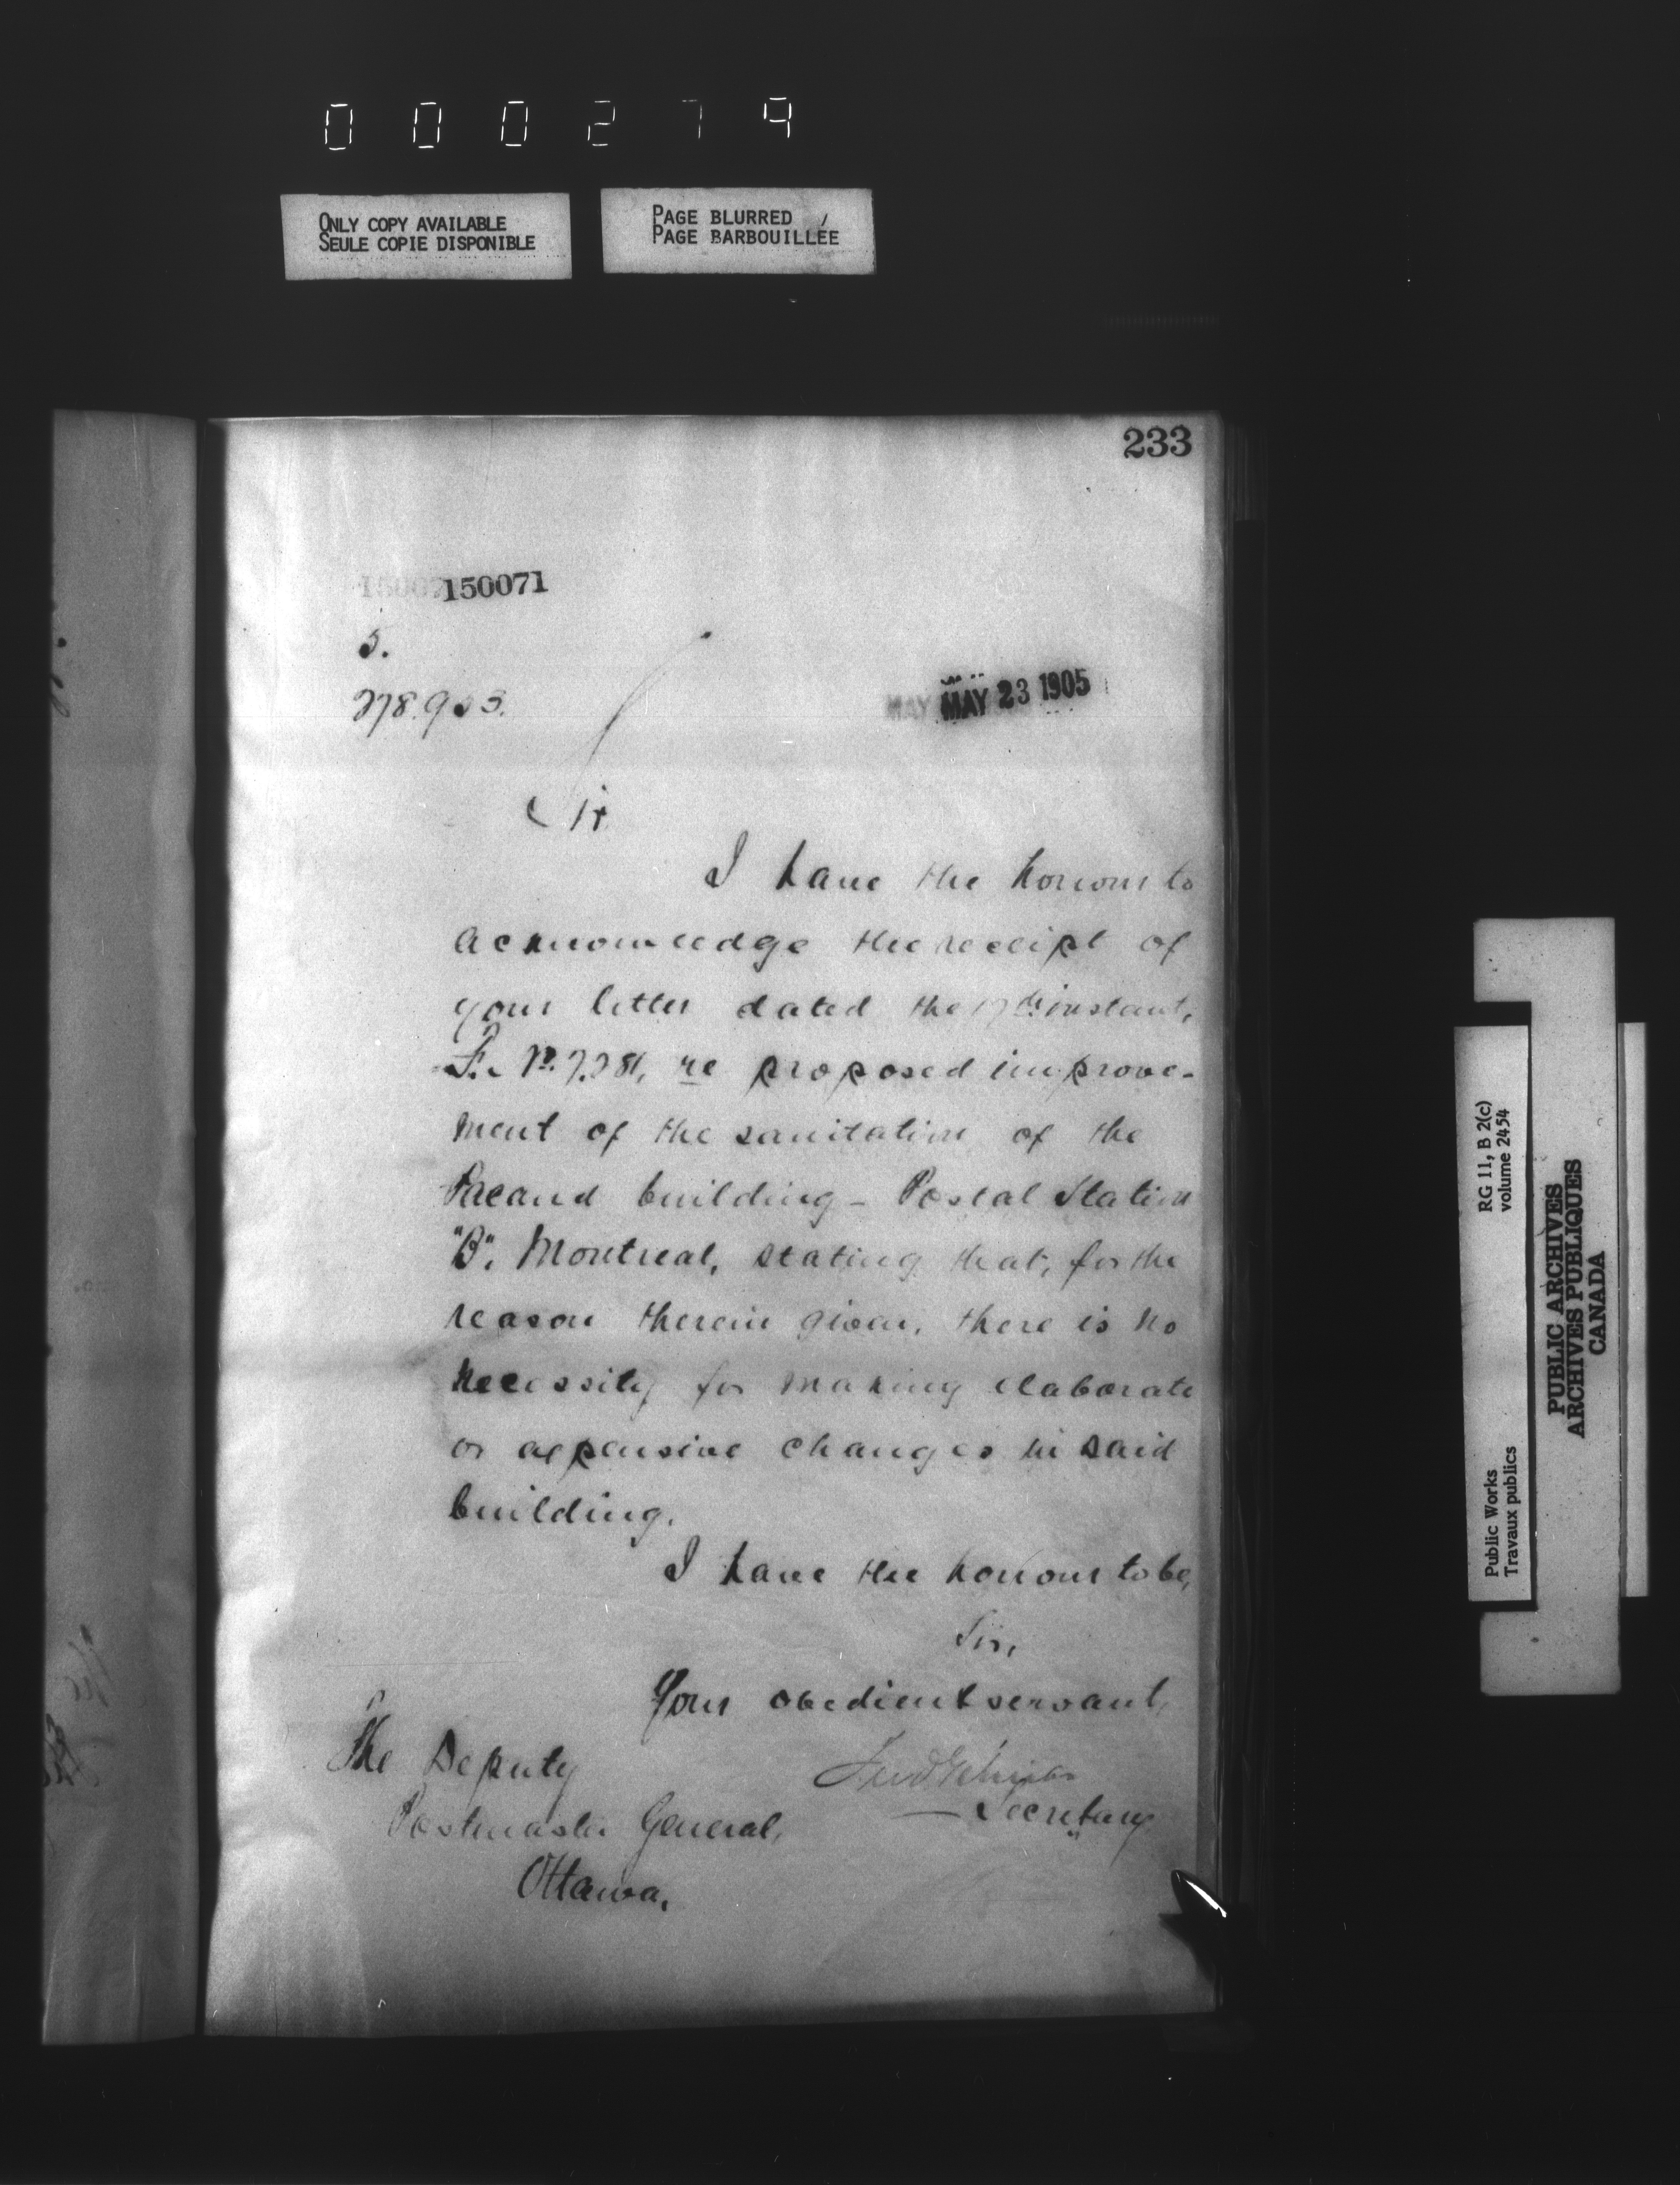 000279
ONLY COPY AVAILABLE
SEULE COPIE DISPONIBLE
PAGE BLURRED
PAGE BARBOUILLÉE
233
150071
5.
278.903.
MAY 23 1905
Sir
I have the honour to
acknowledge the receipt of
your letter dated the 17th instant,
re proposed improve-
ment of the sanitation of the
building - Postal Station
"B", Montreal, stating that, for the
reason therein given, there is no
necessity for making elaborate
or expensive changes in said
building.
I have the honour to be,
Sir,
Your obedient servant,
Secretary
The Deputy
Postmaster General,
Ottawa,
RG 11, B 2(c)
volume 2454
Public Works
Travaux publics
PUBLIC ARCHIVES
ARCHIVES PUBLIQUES
CANADA